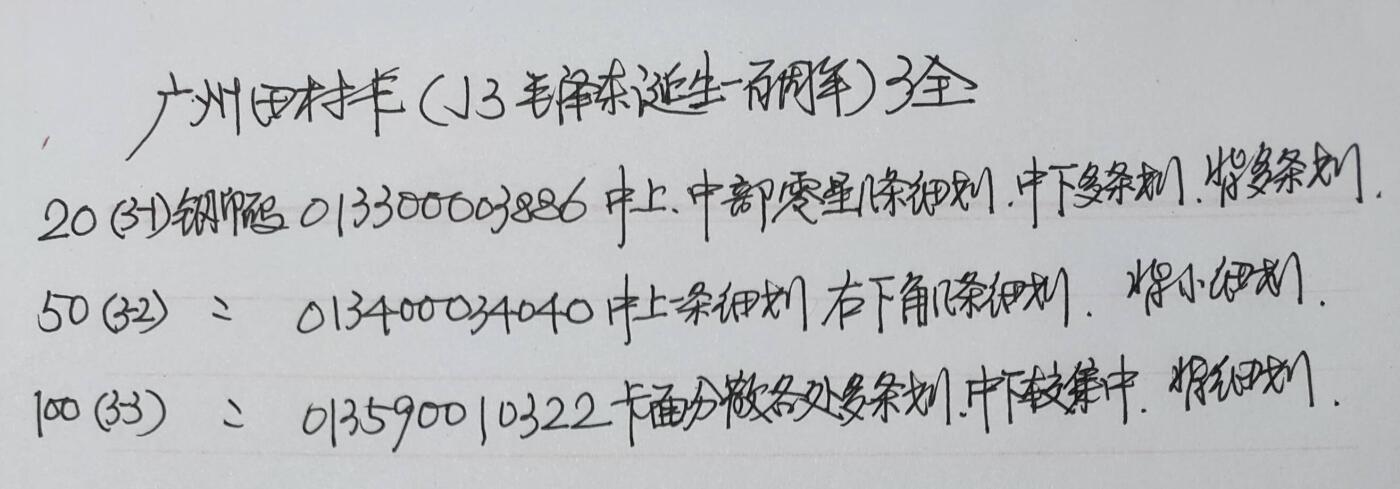 广州田村卡(J3毛泽东诞生一百周年)3全
20(3-1)钢印码013300003886中上.中部零星几条细划.中下多条划.背多条划.
50(3-2) 〃 013400034040中上一条细划 右下角几条细划. 背小细划.
100(3-3) 〃 013590010322卡面分散各处多条划.中下较集中. 背细划.